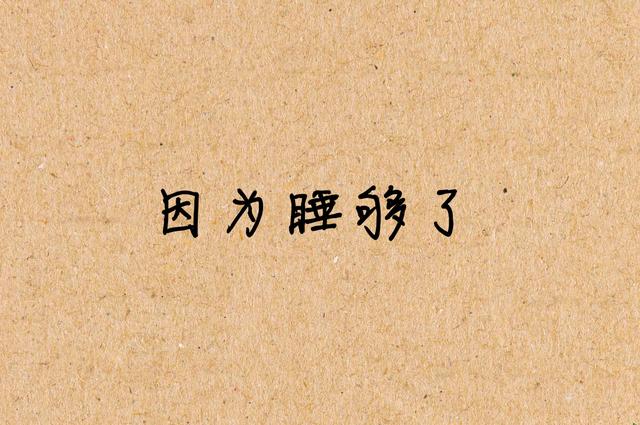 因为睡够了